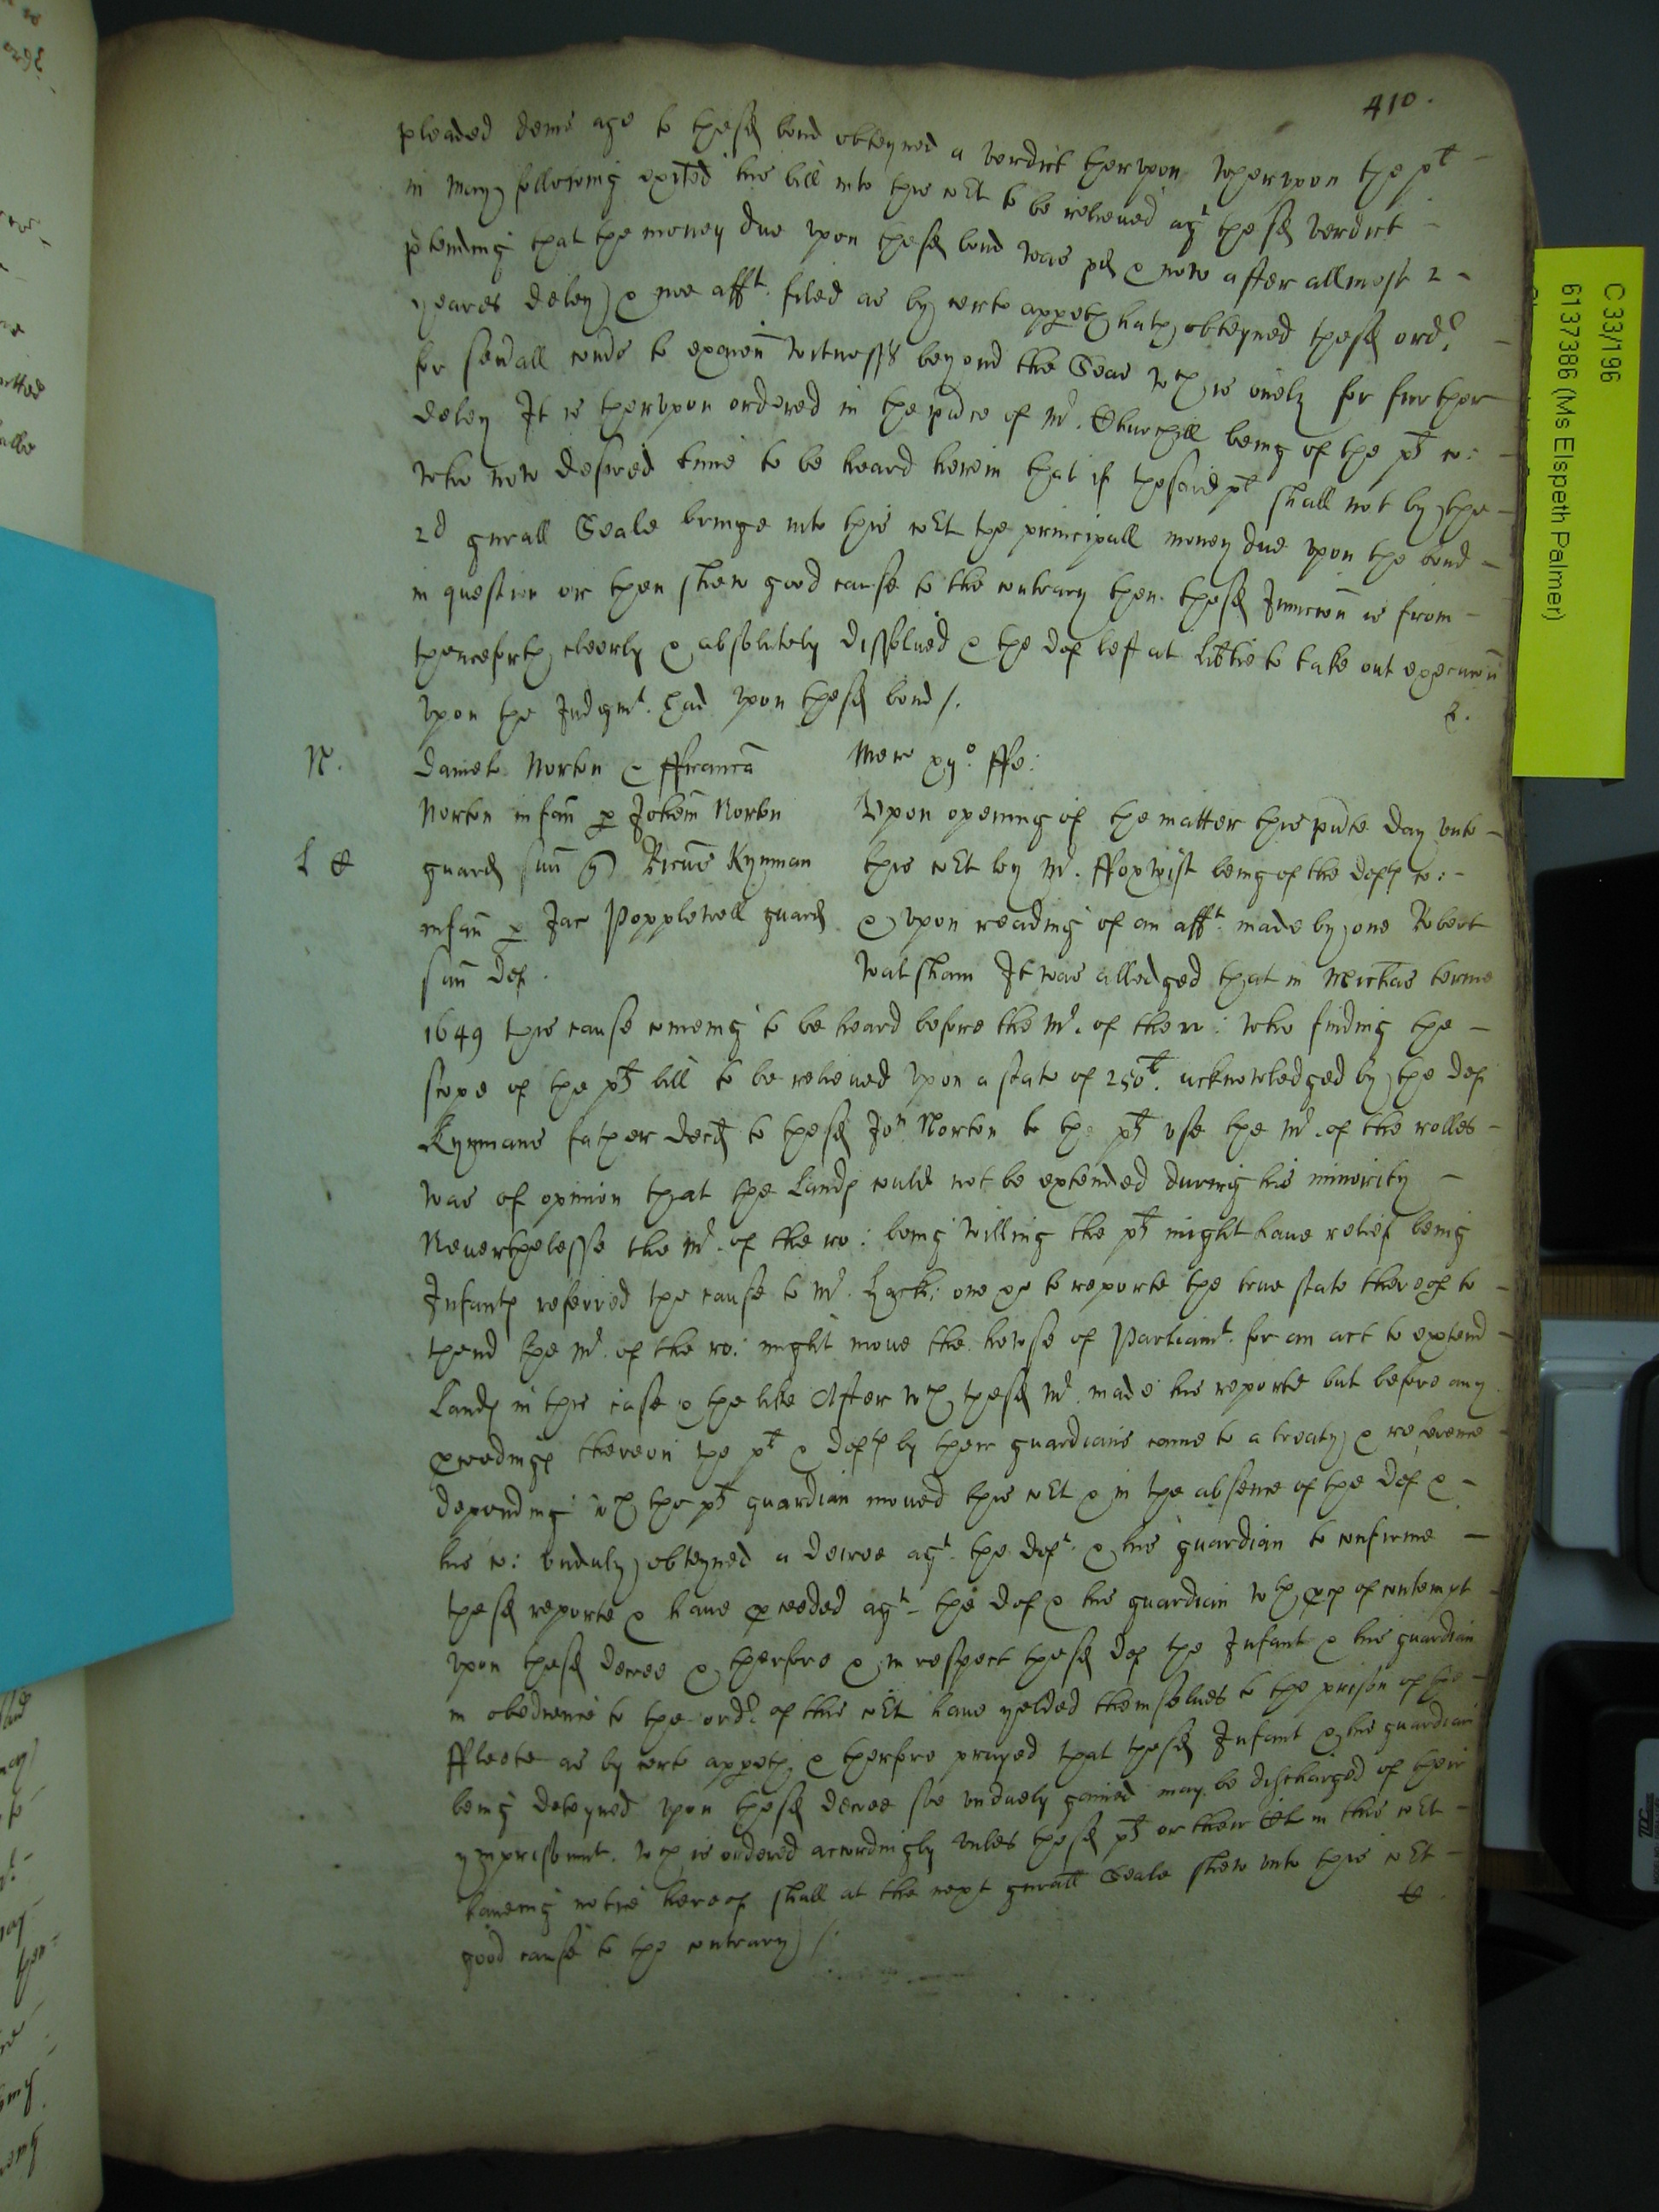 410.
pleaded deins age to the sd bond obteyned a verdict therupon wherupon the plt
in May following exited his bill into this Cort to be relieued agt the sd verdict
ptending that the money due upon the sd bond was pd & now after allmost 2
yeares deley & noe afft. filed as by certe appeth hath obteyned the sd ordr
for seuall comds to examin witnesses beyond the Seas wch is onely for further
deley It is therupon ordered in the pnce of Mr. Churchill being of the plts co:
who now desired time to be heard herein that if the said plt shall not by the
2d gnrall Seale bringe into this Cort the principall money due upon the bond
in question or then shew good cause to the contrary then the sd Iniuncon is from
thenceforth cleerly & absolutely dissolued & the def left at libtie to take out execucon
upon the Judgmt. had upon the sd bond /.
R.
N.
Daniel Norton & ffrancis
Norton infan p Johem Norton
L C
guard suu q Ricus Kynman
infan p Jac Popplewell guard
suu Def.
Merc xijo. ffe:
Upon opening of the matter this pnte day unto
this Cort by Mr. ffoxwist being of the defts co:
& upon reading of an afft. made by one Robert
Walsham It was alledged that in Michas terme
1649 this cause coming to be heard before the Mr. of the ro: who finding the
scope of the plts bill to be relieued upon a state of 250l. acknowledged by the def
Kynmans father decd to the sd Jon Norton to the plts use the Mr. of the rolles
was of opinion that the lands could not be extended during his minority
Neuerthelesse the Mr. of the ro: being willing the plts might haue relief being
Infants referred the cause to Mr. one &c to reporte the true state thereof to
thend the Mr. of the ro: might moue the howse of Parliamt. for an act to extend
lands in this case & the like After wch the sd Mr. made his reporte but before any
pceedings thereon the plt & defts by their guardians came to a treaty & reference
depending wch the plts guardian moued this Cort & in the absence of the def &
his co: unduly obteyned a decree agt. the deft. & his guardian to confirme
the sd reporte & haue pceeded agt the def & his guardian wth pces of contempt
upon the sd decree & therfore & in respect the sd def the Infant & his guardian
in obedience to the ordr of this Cort haue yelded themselues to the prison of the
ffleete as by certe appeth & therfore prayed that the sd Infant & his guardian
being deteyned upon the sd decree soe unduely gained may be discharged of their
ymprisonmt. wch is ordered accordingly unles the sd plts or their Cl in this Cort
haueing notice hereof shall at the next gnrall Seale shew unto this Cort
good cause to the contrary /.
C
C 33/196
6137386 (Ms Elspeth Palmer)